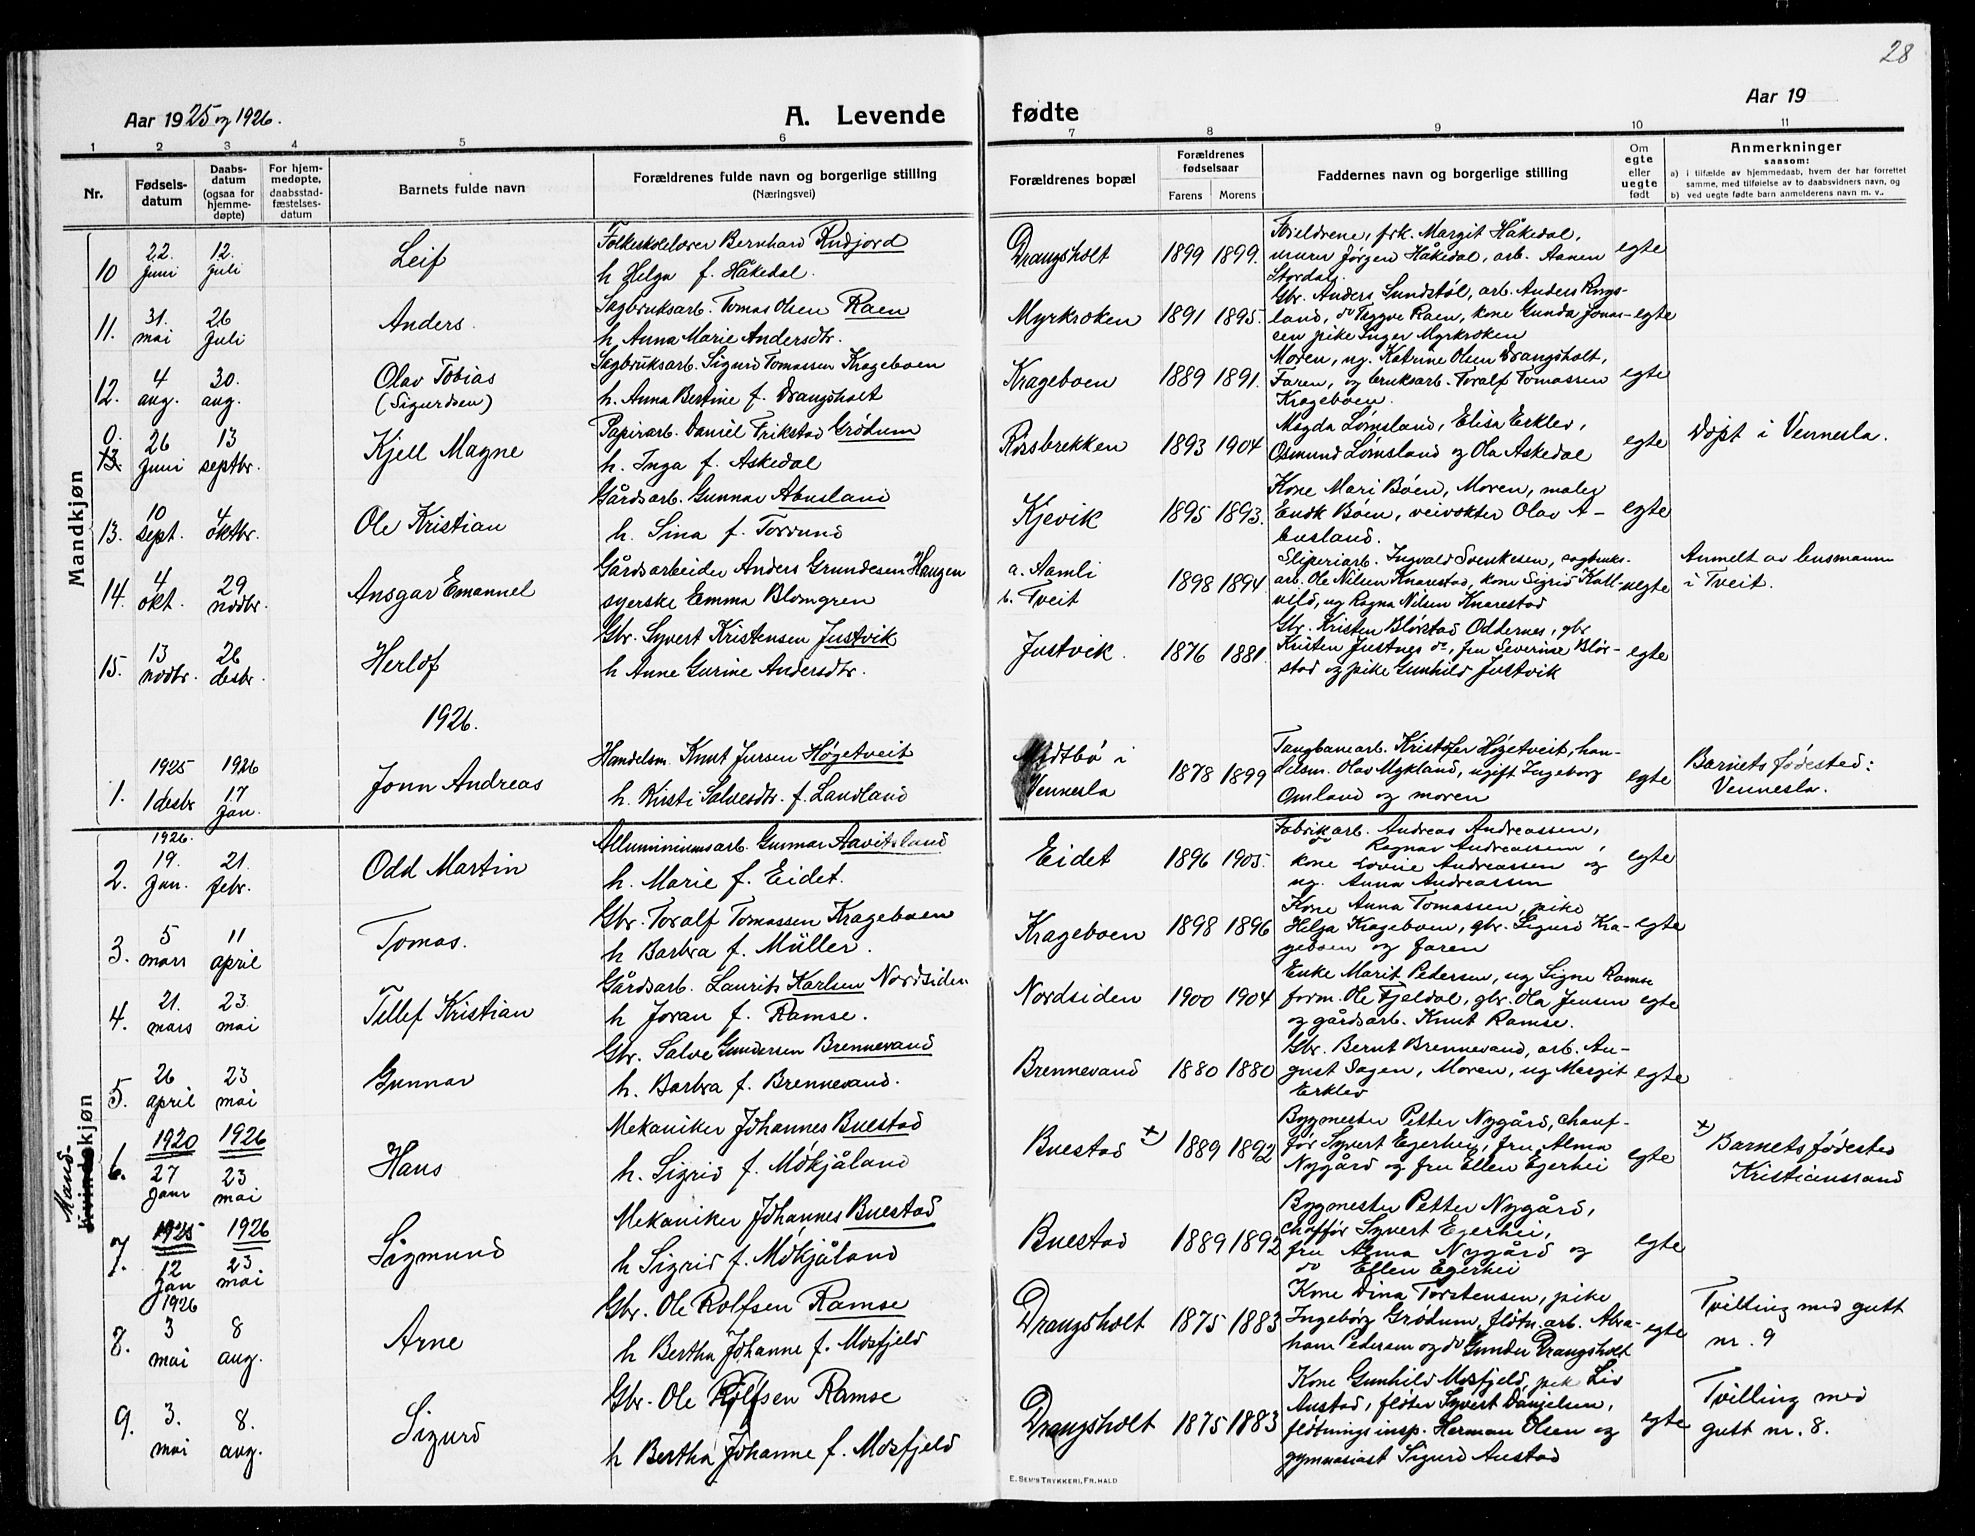 28
Aar 1925 og 1926.
A. Levende
fødte
Aar 19
1 2 3 4 5 6 7 8 9 10 11
Nr.
Fødsels-
datum
Daabs-
datum
(ogsaa for
hjemme-
døpte)
For hjem-
medøpte,
daabsstad-
fæstelses-
datum
Barnets fulde navn
Forældrenes fulde navn og borgerlige stilling
(Næringsvei)
Forældrenes bopæl
Forældrenes
fødselsaar
Farens Morens
Faddernes navn og borgerlige stilling
Om
egte
eller
uegte
født
Anmerkninger
saasom:
a) i tilfælde av hjemmedaab, hvem der har forrettet
samme, med tilføielse av to daabsvidners navn, og
b) ved uegte fødte barn anmelderens navn m. v..
Mandkjøn
10
22.
Juni
12.
Juli
Leif
Folkeskolelærer Bernhard Rudjord
h Helga f. Håkedal.
Drangsholt
1899 1899.
Foreldrene, frk. Margit Håkedal,
murer Jørgen Håkedal, arb. Aanen
Stordal.
egte
11.
31.
mai
26
Juli
Anders.
Sagbruksarb. Tomas Olsen Raen
h Anna Marie Andersdtr.
Myrkroken
1891 1895.
Gbr. Anders Sundstøl, arb. Anders Rugs-
land, do Trygve Raen, kone Gunda Jonas-
sen pike Inger Myrkroken
egte
12.
4
aug.
30.
aug.
Olav Tobias
(Sigurdsen)
Sagbruksarb. Sigurd Tomassen Krageboen
h. Anna Bertine f. Drangsholt
Krageboen
1889 1891.
Moren, ug. Katrine Olsen Drangsholt,
Faren, og bruksarb. Toralf Tomassen
Krageboen.
egte
0.
13.
26
Juni
13
septbr.
Kjell Magne
Papirarb. Daniel Frikstad Grødum
h. Inga f. Askedal
Rossbrekken
1893 1904
Magda Lømsland, Elisa Erklev,
Osmund Lømsland og Ola Askedal
egte
Døpt i Vennesla.
13.
10
sept.
4
oktbr.
Ole Kristian
Gårdsarb. Gunnar Abusland
h. Sina f. Torrund
Kjevik
1895 1893.
Kone Mari Bøen, Moren, maler
Endk Bøen, veivokter Olav A-
busland.
egte
14.
4
okt.
29
novbr.
Ansgar Emanuel
Gårdsarbeider Anders Grundesen Haugen
syerske Emma Blomgren
a. Aamli
b. Tveit
1898 1894
Sliperiarb. Ingvald Svenkesen, sagbruks-
arb. Ole Nilsen Knarestad, kone Sigrid Katt-
vild, ug Ragna Nilsen Knarestad
uegte
Anmelt av lensmann
i Tveit.
15.
13
novbr.
26
desbr.
Herlof
Gbr. Syvert Kristensen Justvik
h Anne Gurine Andersdtr.
Justvik.
1876 1881.
Gbr. Kristen Blørstad Oddernes, gbr
Kristen Justnes do, fru Severine Blør-
stad og pike Gunhild Justvik
egte
1926.
1.
1925
1 desbr
1926
17
Jan.
Jonn Andreas
Handelsm. Knut Jursen Høgetveit
h. Kirsti Salvesdtr. f. Landland
Midtbø i
Vennesla
1878 1899
Taugbanearb. Kristofer Høgetveit, han-
delsm. Olav Mykland, ugift Ingeborg
Omland og moren
egte
Barnets fødested:
Vennesla.
2.
1926.
19.
Jan.
21.
febr.
Odd Martin
Alluminiumsarb. Gunnar Aavitsland
h. Marie f. Eidet.
Eidet
1896 1905.
Fabrikarb. Andreas Andreassen,
do Ragnar Andreassen,
kone Lovise Andreassen og
ug. Anna Andreassen
egte
3.
5
mars
11
april
Tomas.
Gbr. Toralf Tomassen Krageboen
h Barbra f. Müller.
Krageboen
1898 1896
Kone Anna Tomassen, pike
Helga Krageboen, gbr. Sigurd Kra-
geboen og faren
egte
4.
21.
mars
23.
mai
Tellef Kristian
Gårdsarb. Laurits Karlsen Nordsiden
h Joran f. Ramse.
Nordsiden
1900 1904
Enke Marit Pedersen, ug Signe Ramse
form. Ole Fjeldal, gbr. Ola Jensen
og gårdsarb. Knut Ramse.
egte
5.
26
april
23
mai
Gunnar
Gbr. Salve Gundersen Brennevand
h. Barbra f. Brennevand.
Brennevand
1880 1880
Gbr. Bernt Brennevand, arb. Au-
gust Dagen, Moren, ug Margit
Erklev
egte
Mand-
Kvindekjøn
6.
1920
27
Jan
1926
23
mai
Hans
Mekaniker Johannes Buestad
h. Sigrid f. Mokjåland
Buestad +)
1889 1892
Bygmester Petter Nygård, chauf-
før Syvert Egerhei, fru Alma
Nygård og fru Ellen Egerhei
egte
+) Barnets fødested
Kristianssand
7.
1925
12
Jan
1926
23
mai
Sigmund
Mekaniker Johannes Buestad
h Sigrid f. Mokjåland
Buestad
1889 1892
Bygmester Petter Nygård,
chaffør Syvert Egerhei,
fru Alma Nygård og
do Ellen Egerhei
egte
8.
1926
3
mai
8
aug.
Arne
Gbr. Ole Rolfsen Ramse
h Bertha Johanne f. Mosfjeld
Drangsholt
1875 1883
Kone Dina Torstensen, pike
Ingebørg Grødum, fløtn. arb. Abra-
ham Pedersen og do Gunder Drangsholt
egte
Tvilling med gutt
nr. 9
9.
3.
mai
8.
aug.
Sigurd
Gbr. Ole Rolfsen Ramse
h Bertha Johanne f. Mosfjeld
Drangsholt
1875 1883
Kone Gunhild Mosfjeld, pike Liv
Austad, fløter Syvert Danjelsen,
fløtningsinsp. Herman Olsen og
gymnasiast Sigurd Austad
egte
Tvilling med
gutt nr. 8.
E. SEM'S TRYKKERI, FR.HALD